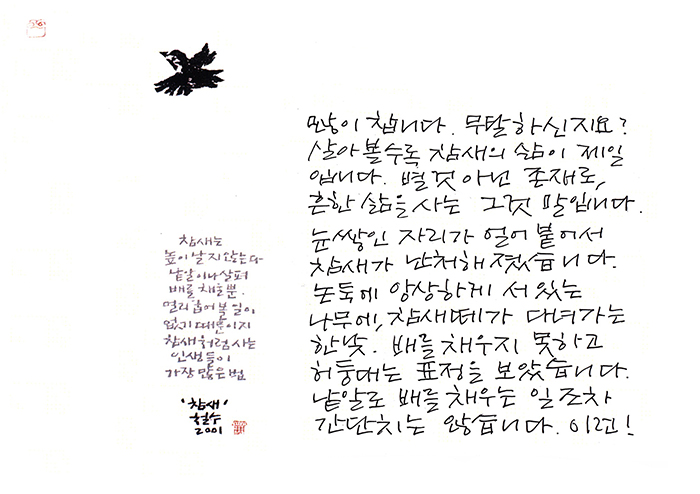 참새는
높이 날지 않는다
낱알이나 살펴
배를 채울 뿐.
멀리 굽어 볼 일이
없기 때문이지
참새처럼 사는
인생들이
가장 많은 법
'참새'
철수
2001
많이 찹니다. 무탈하신지요?
살아볼수록 참새의 삶이 제일
입니다. 별것 아닌 존재로,
흔한 삶을 사는 그것 말입니다.
눈쌓인 자리가 얼어 붙어서
참새가 난처해졌습니다.
논둑에 앙상하게 서있는
나무에, 참새떼가 다녀가는
한낮. 배를 채우지 못하고
허둥대는 표정을 보았습니다.
낱알로 배를 채우는 일조차
간단치는 않습니다.